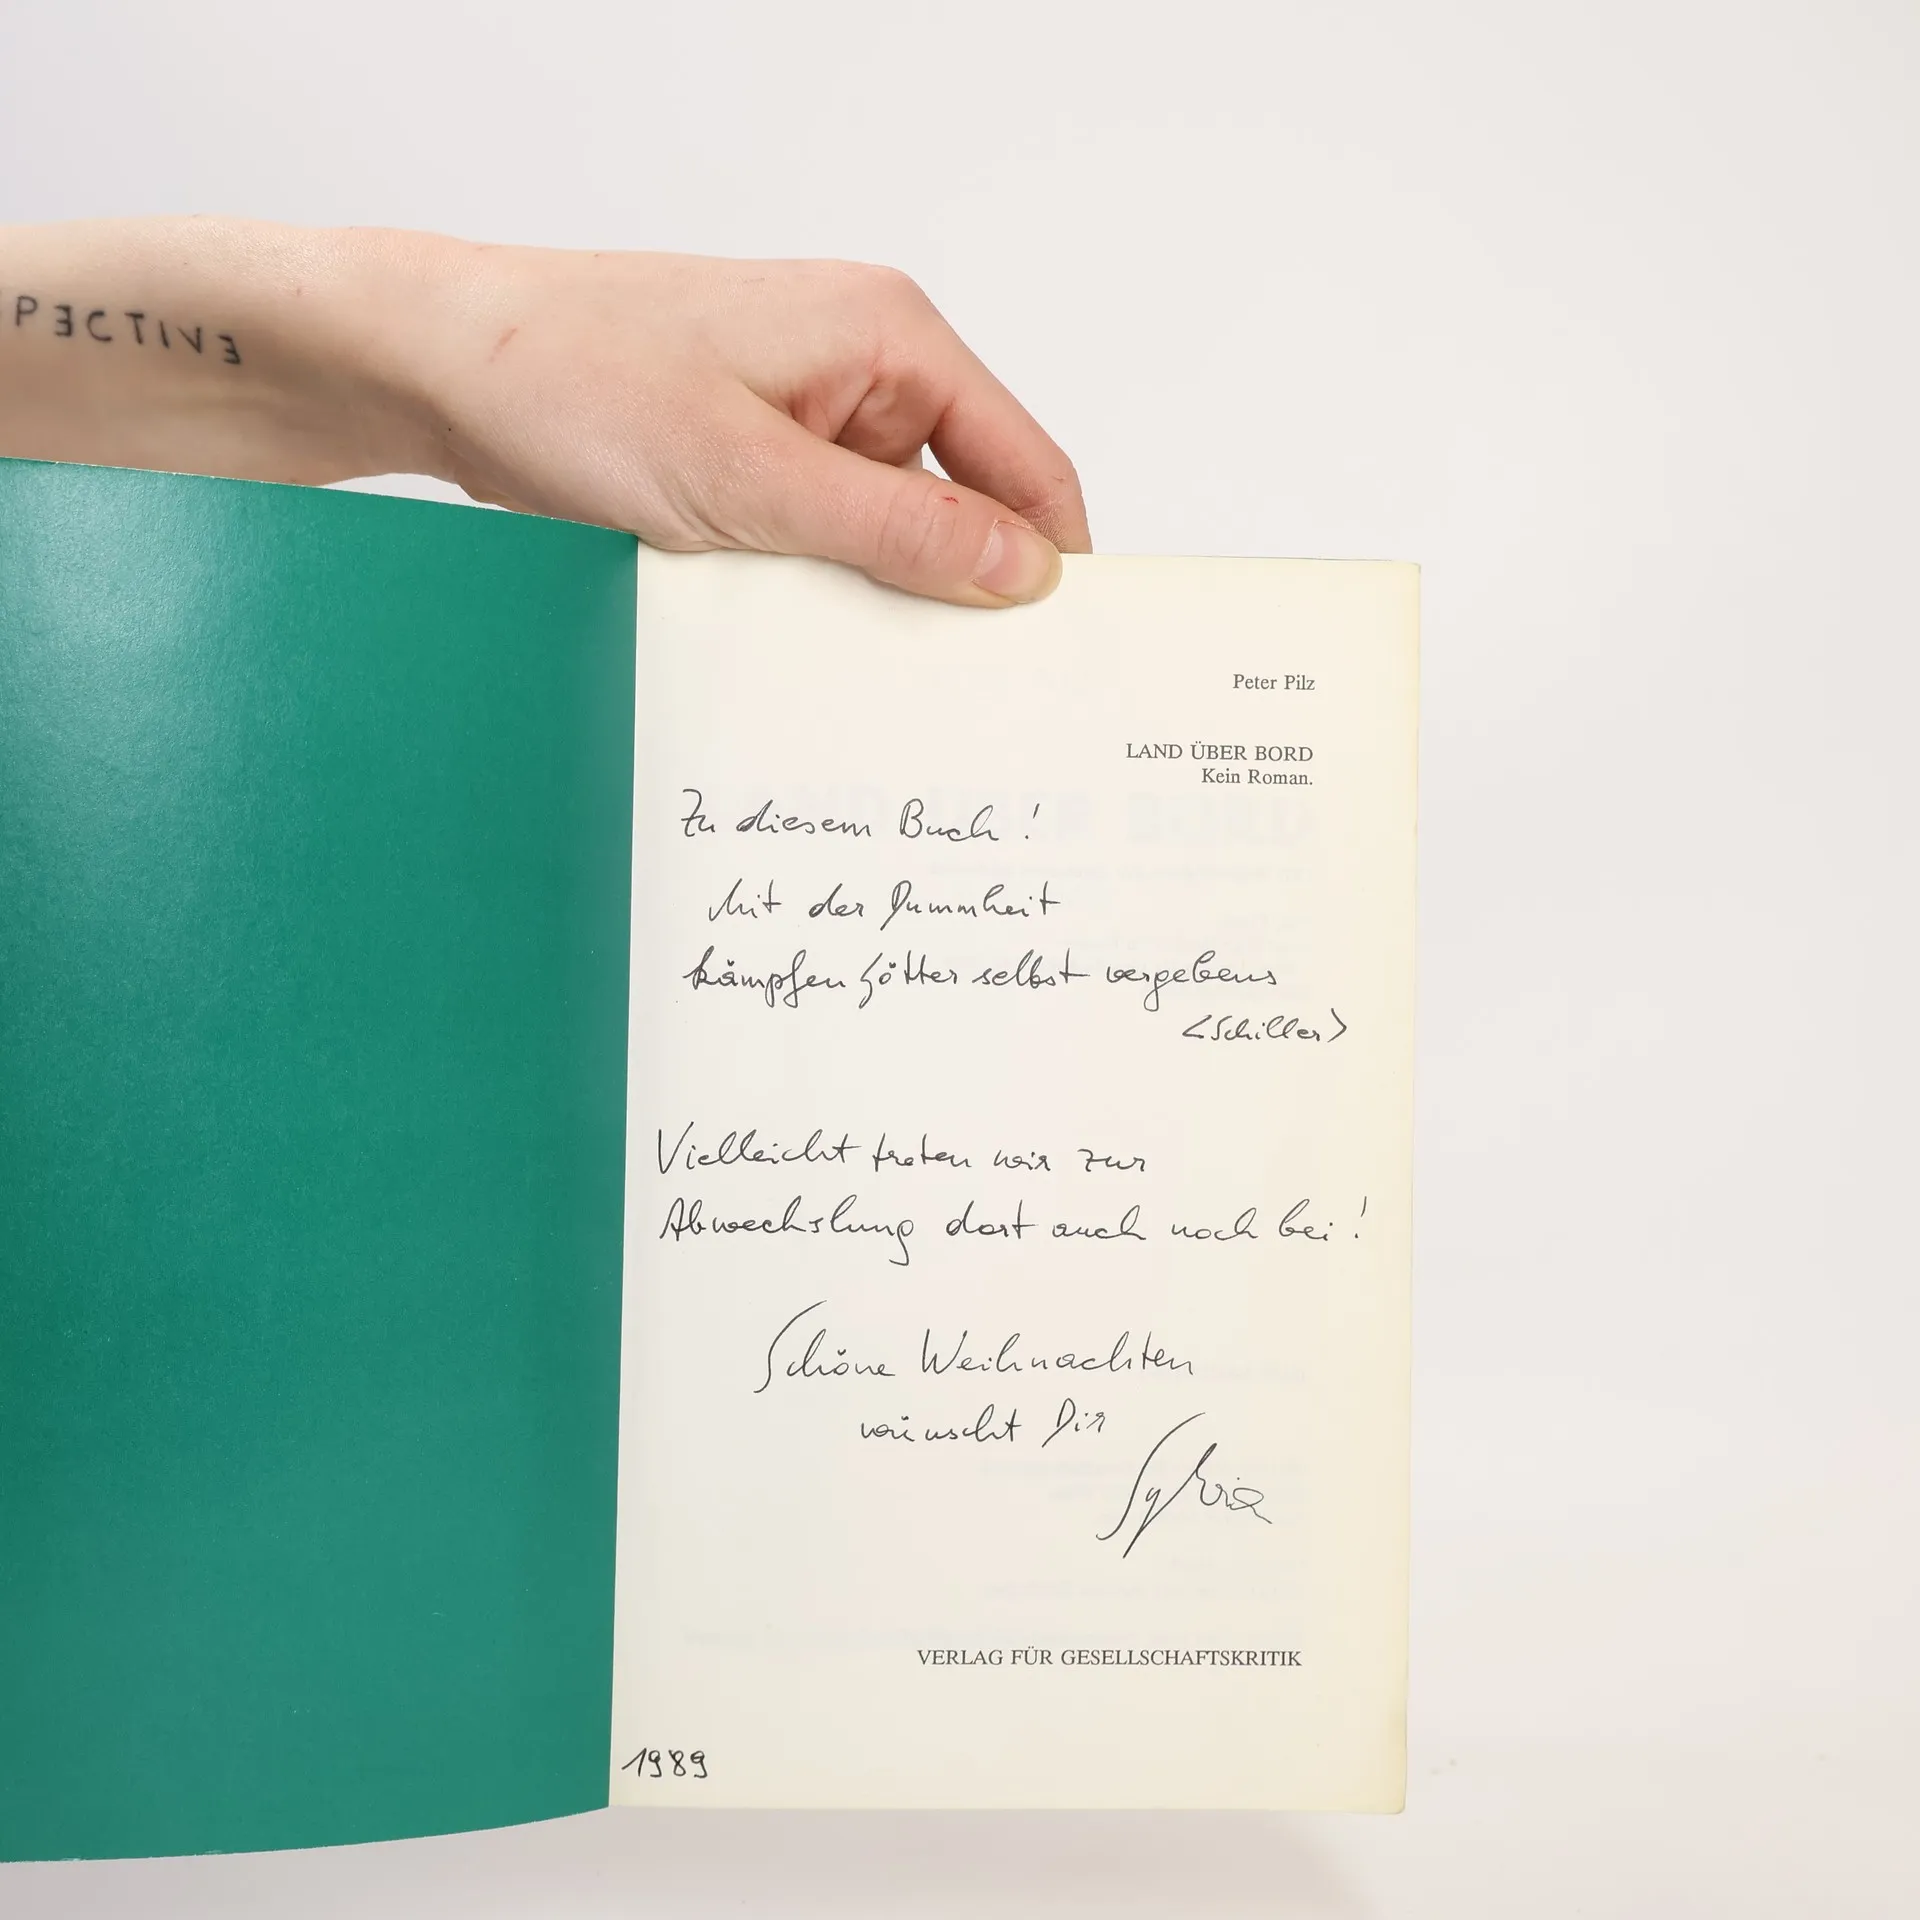 PECTIVE
Peter Pilz
LAND ÜBER BORD
Kein Roman.
Zu diesem Buch!
Mit der Dummheit
kämpfen Götter selbst vergebens
<Schiller>
Vielleicht treten wir zur
Abwechslung dort auch noch bei!
Schöne Weihnachten
wünscht Dir
Sylvia
VERLAG FÜR GESELLSCHAFTSKRITIK
1989